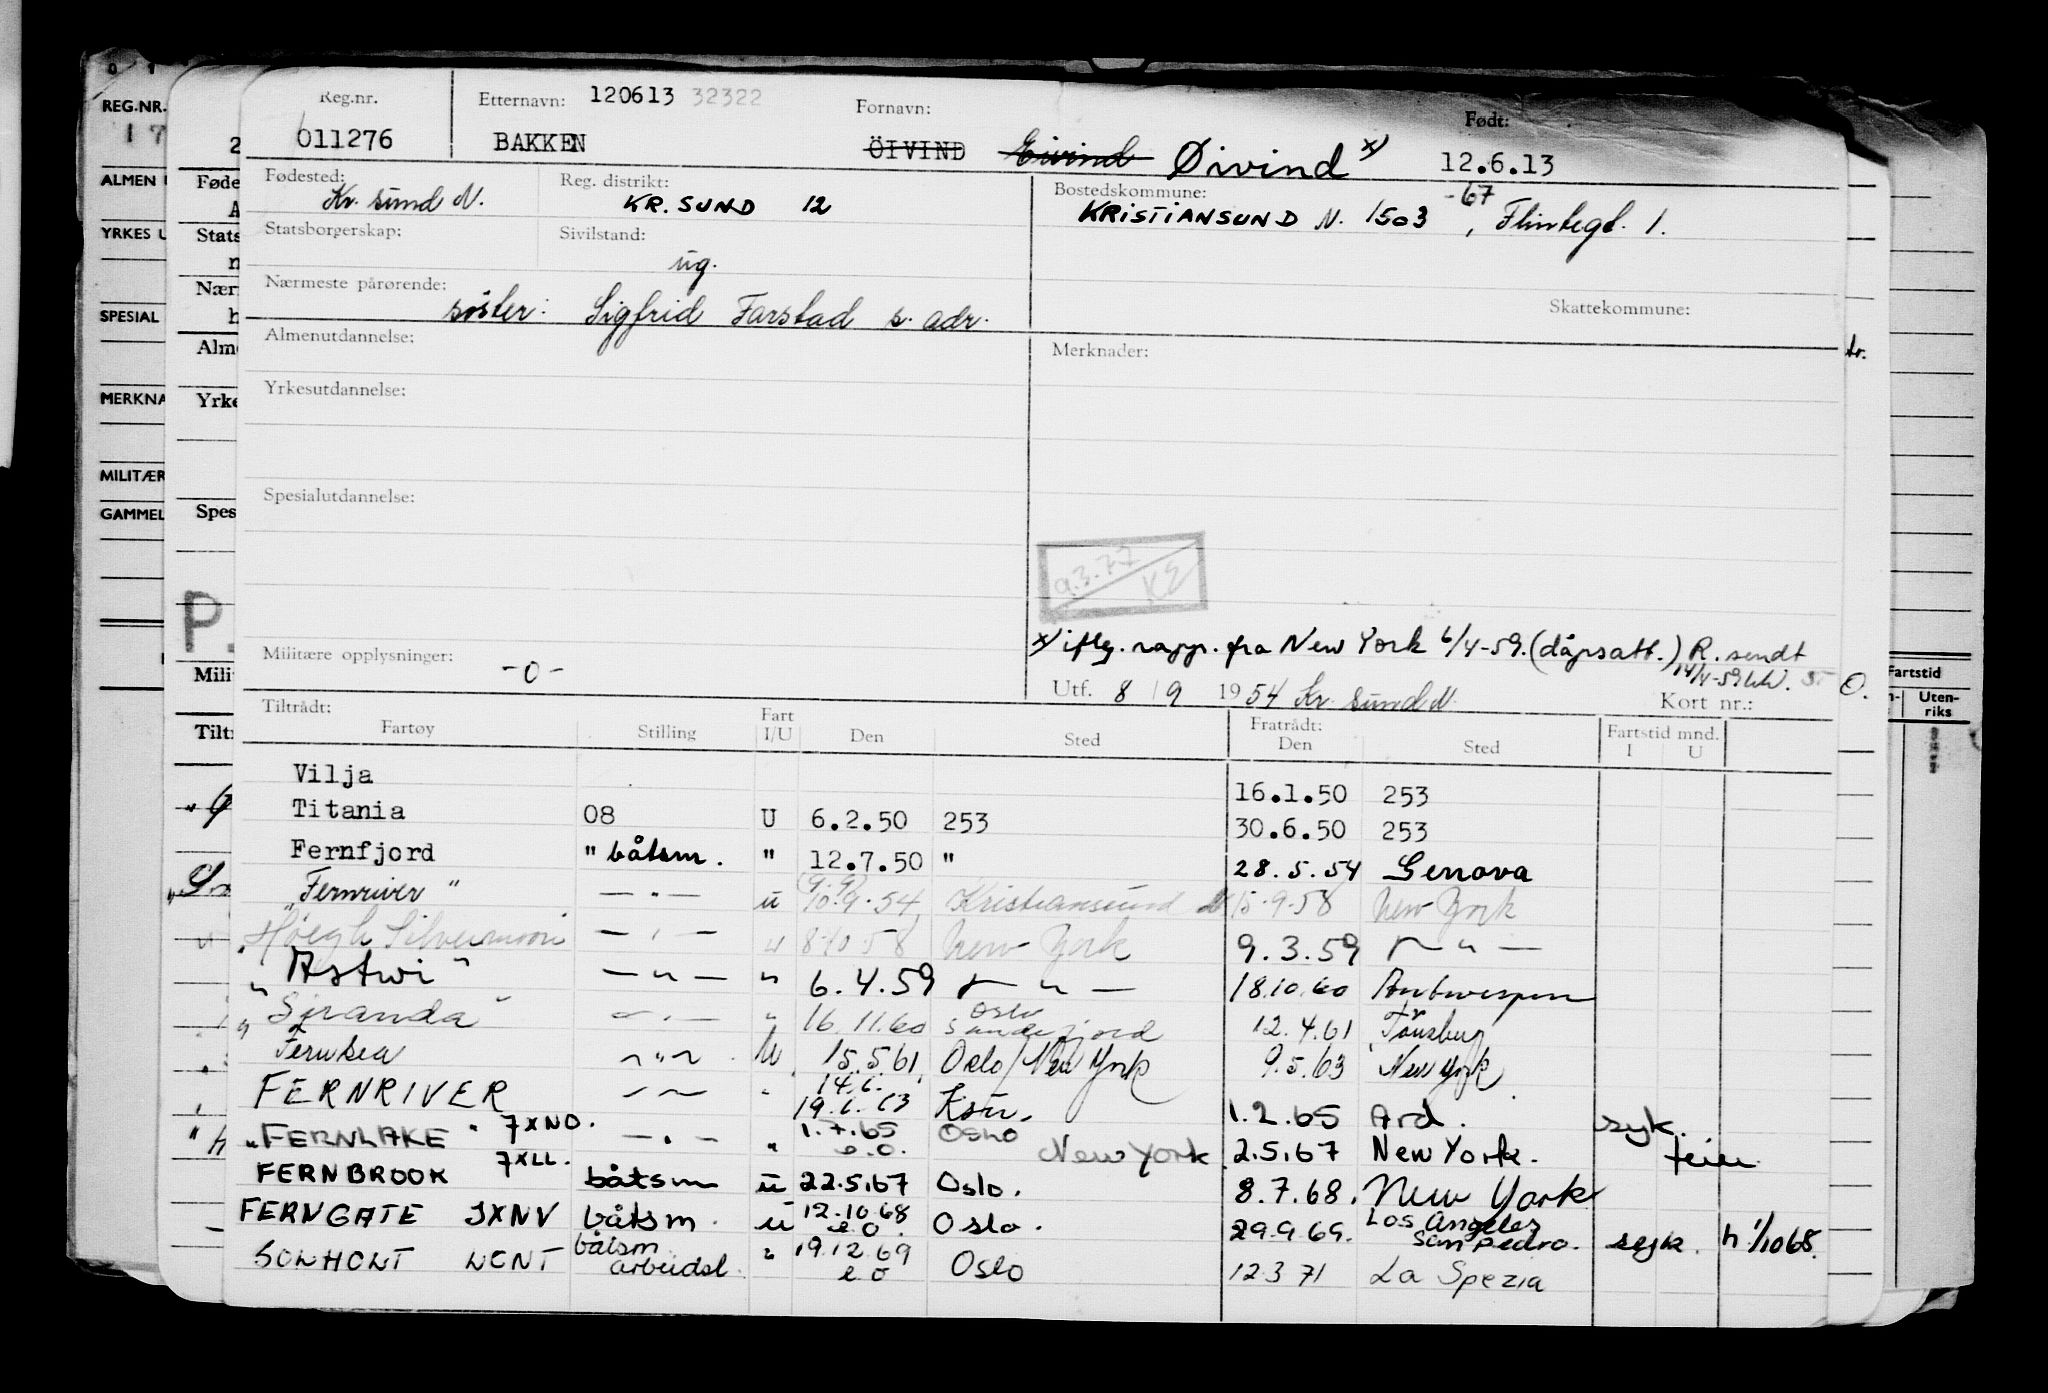 Reg.nr. Etternavn: 120613 32322 Fornavn: Født:
011276 BAKKEN ÖIVIND Eivind Øivind x) 12.6.13
Fødested: Reg. distrikt: Bostedskommune: -67
Kr. sund N. KR. SUND 12 KRISTIANSUND N. 1503, Flintegt. 1.
Statsborgerskap: Sivilstand:
ug.
Nærmeste pårørende: Skattekommune:
søster: Sigfrid Farstad s. adr.
Almenutdannelse: Merknader:
Yrkesutdannelse:
Spesialutdannelse:
9.3.77 KE
x) iflg. rapp. fra New York 6/4-59. (dåpsatt.) R. sendt
14/4-59
Militære opplysninger: -0-
Utf. 8/9 1954 Kr. sund N. Kort nr.:
Tiltrådt: Fratrådt:
Fartøy Stilling Fart I/U Den Sted Den Sted Fartstid mnd. I U
Vilja 16.1.50 253
Titania 08 U 6.2.50 253 30.6.50 253
Fernfjord " båtsm. " 12.7.50 " 28.5.54 Genova
"Fernriver" — " — u (9.9) 10.9.54 Kristiansund N 15.9.58 New York
"Høegh Silvermoon — " — " 8.10.58 New York 9.3.59 — " —
"Astwi" — " — " 6.4.59 — " — 18.10.60 Antwerpen
"Siranda" — " — " 16.11.60 Oslo Sandefjord 12.4.61 Tönsberg
Fernsea — " — U 15.5.61 Oslo/New York 9.5.63 New York
FERNRIVER — " — " 14.6. 19.6.63 Ksu. 1.2.65 Ard. syk.
"FERNLAKE" 7XNO. — " — " 1.7.65 e.o. Oslo New York 2.5.67 New York. ferie
FERNBROOK 7XLL. båtsm u 22.5.67 Oslo. 8.7.68. New York
FERNGATE JXNV båtsm. u 12.10.68 e.o. Oslo. 29.9.69. Los Angeles San Pedro. syk. h 1/1068.
SOLHOLT LCNT båtsm arbeidsl. " 19.12.69 e o Oslo 12.3.71 La Spezia
REG.NR.
17
ALMEN
YRKES U
SPESIAL
MERKNA
MILITÆR
GAMMEL
Føde
Stats
Nær
Alme
Yrke
Spes
P.
Mili
Tiltr
Fartstid
Uten-
riks